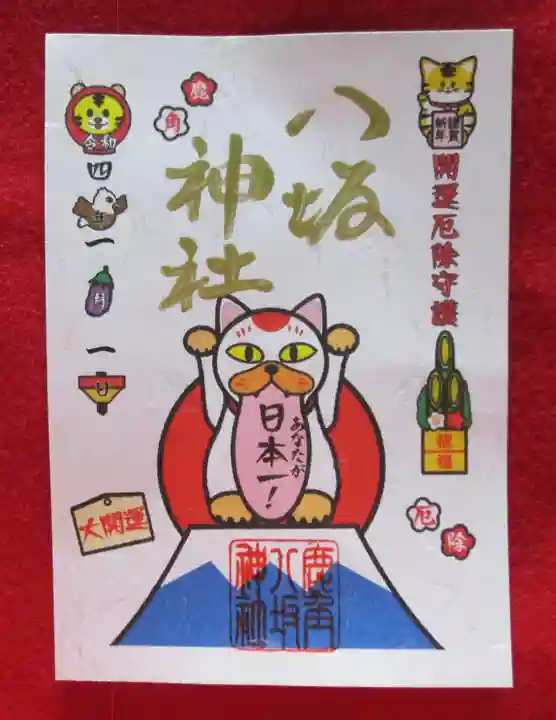 謹賀
新年
開運厄除守護
招福
八坂
神社
鹿
角
令和
四
年
一
月
一
日
あなたが
日本一!
大開運
厄
除
鹿角
八坂
神社